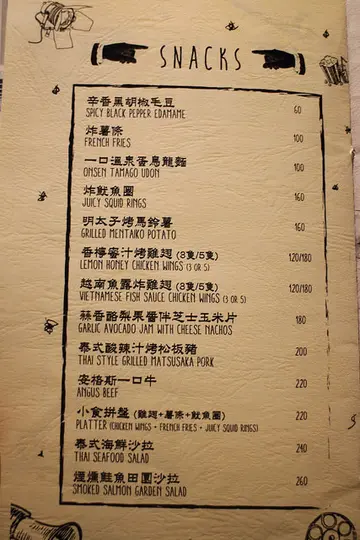 SNACKS
辛香黑胡椒毛豆
SPICY BLACK PEPPER EDAMAME 60
炸薯條
FRENCH FRIES 100
一口溫泉蛋烏龍麵
ONSEN TAMAGO UDON 100
炸魷魚圈
JUICY SQUID RINGS 160
明太子烤馬鈴薯
GRILLED MENTAKO POTATO 160
香檸蜜汁烤雞翅 (3隻/5隻)
LEMON HONEY CHICKEN WINGS (3 OR 5) 120/180
越南魚露炸雞翅 (3隻/5隻)
VIETNAMESE FISH SAUCE CHICKEN WINGS (3 OR 5) 120/180
蒜香酪梨果醬伴芝士玉米片
GARLIC AVOCADO JAM WITH CHEESE NACHOS 180
泰式酸辣汁烤松板豬
THAI STYLE GRILLED MATSUSAKA PORK 200
安格斯一口牛
ANGUS BEEF 220
小食拼盤 (雞翅+薯條+魷魚圈)
PLATTER (CHICKEN WINGS + FRENCH FRIES + JUICY SQUID RINGS) 220
泰式海鮮沙拉
THAI SEAFOOD SALAD 240
煙燻鮭魚田園沙拉
SMOKED SALMON GARDEN SALAD 260